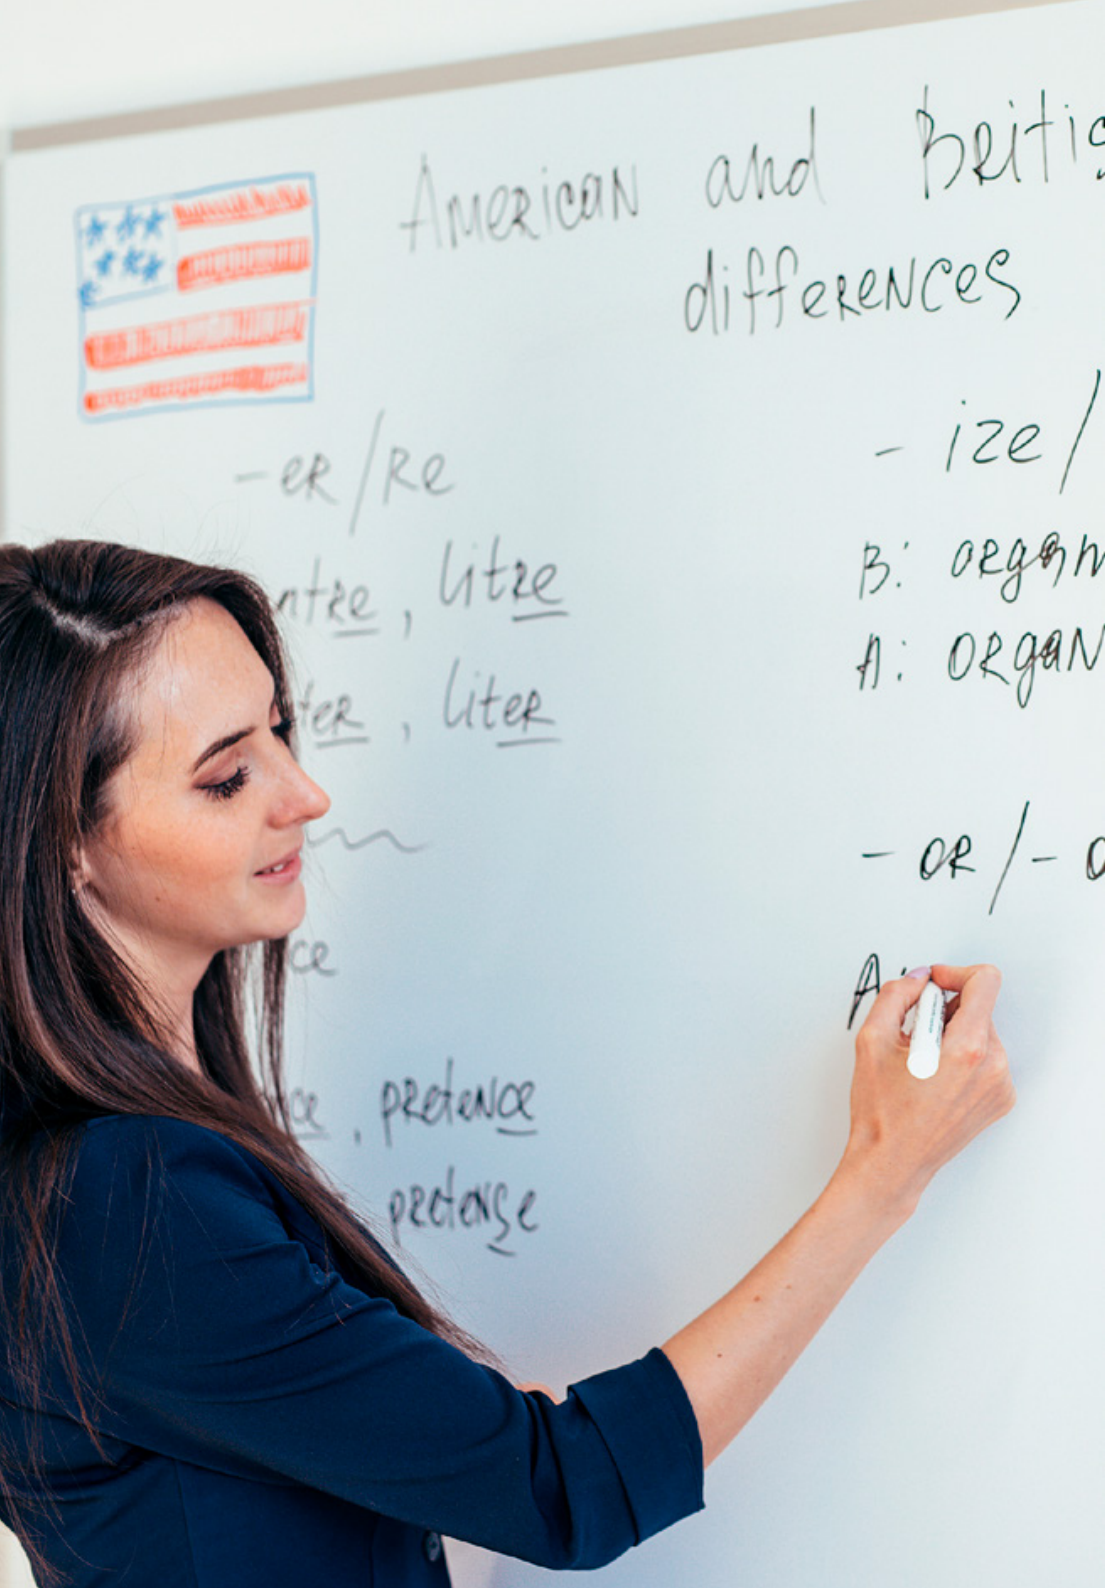 American and Britis
differences
-er/re
ntre, litre
ter, liter
ce
ce, pretence
pretense
- ize/
B: organ
A: organ
- or/- o
A: